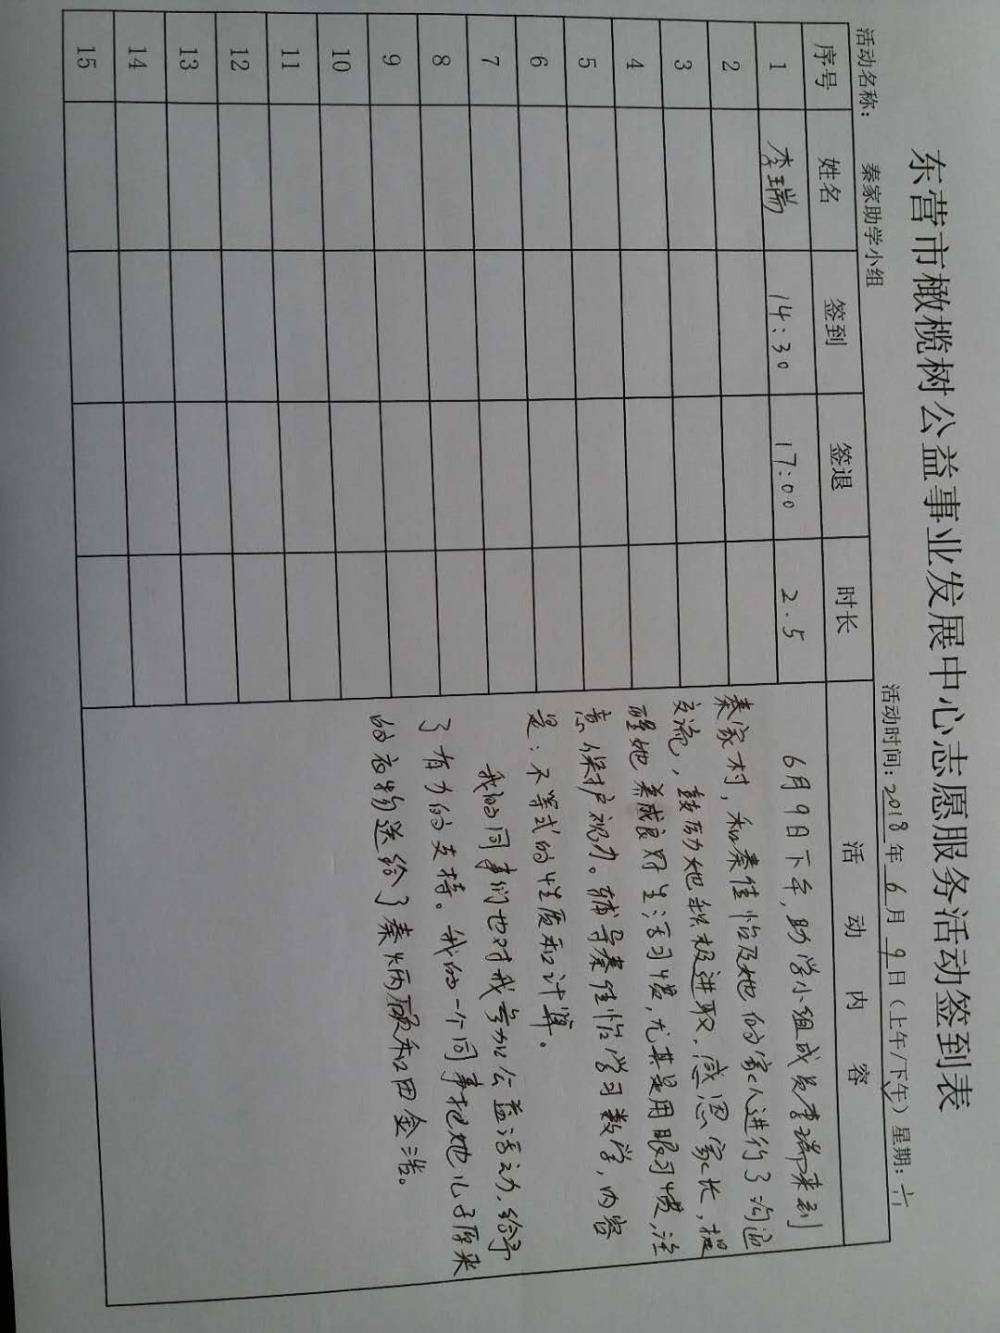 东营市橄榄树公益事业发展中心志愿服务活动签到表
活动名称： 秦家助学小组 活动时间：2018年6月9日（上午/下午）星期：六
序号 姓名 签到 签退 时长 活动内容
1 李瑞 14:30 17:00 2.5
2
3
4
5
6
7
8
9
10
11
12
13
14
15
6月9日下午，助学小组成员李瑞来到
秦家村，和秦佳怡及她的家人进行了沟通
交流，鼓励她积极进取，感恩家长，提
醒她养成良好生活习惯，尤其是用眼习惯，注
意保护视力。辅导秦佳怡学习数学，内容
是：不等式的性质和计算。
我的同事们也对我参加公益活动，给予
了有力的支持。我的一个同事把她儿子原来
的衣物送给了秦炳颐和田金浩。